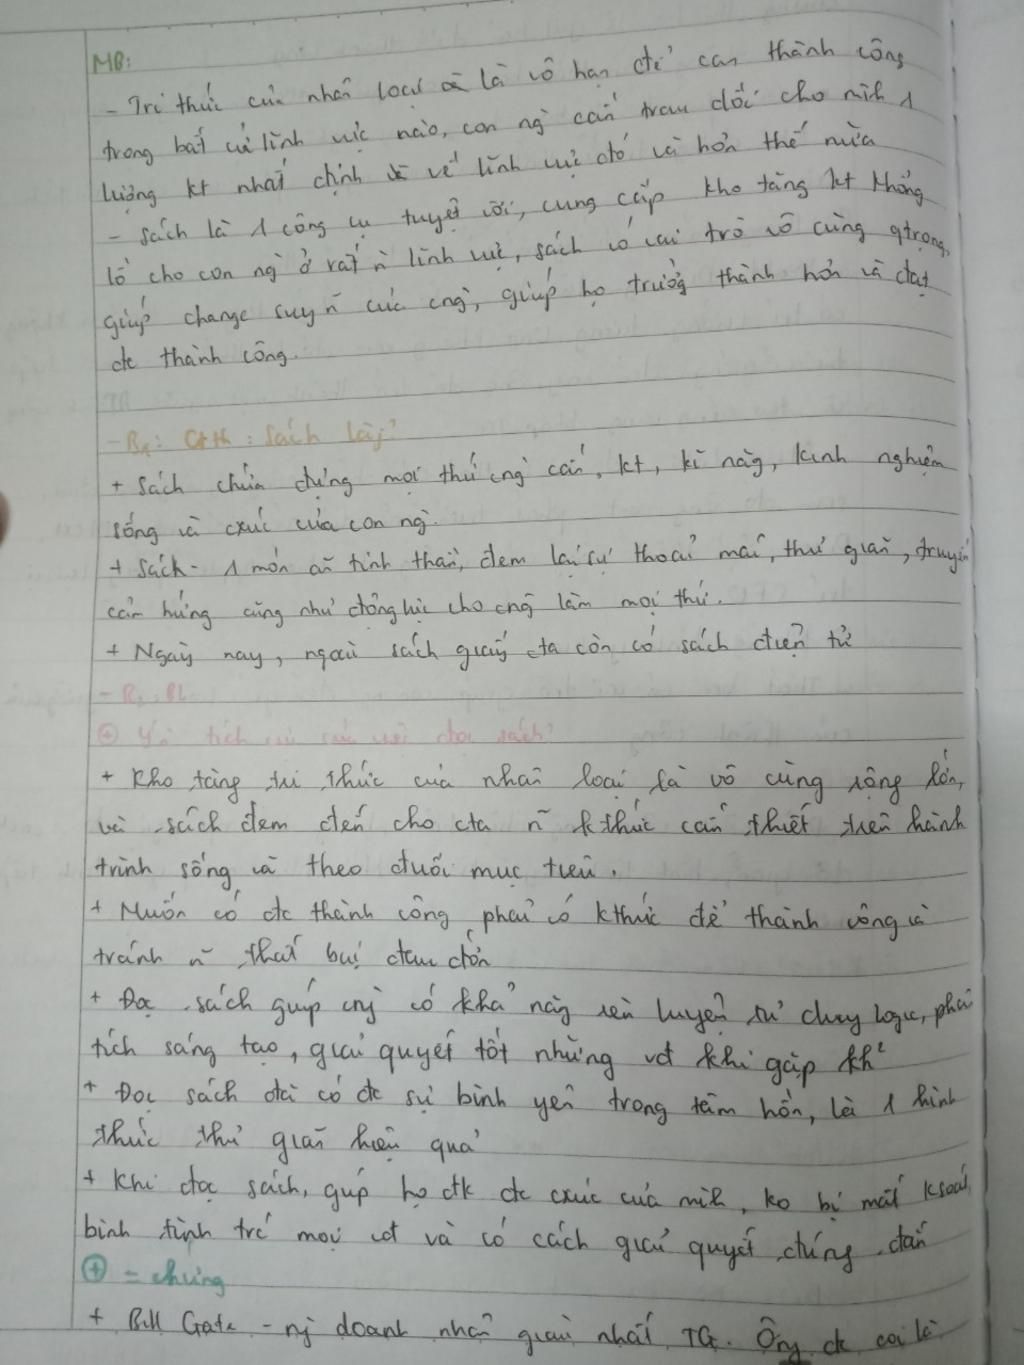 MB:
- Tri thức của nhân loại là vô hạn để con thành công
trong bất cứ lĩnh vực nào, con ng` cần trau dồi cho mìh 1
lượng kt nhất định về lĩnh vực đó và hơn thế nữa
- Sách là 1 công cụ tuyệt vời, cung cấp kho tàng kt khổng
lồ cho con ng` ở rất ` lĩnh vực, sách có vai trò vô cùng qtrọng,
giúp change suy ñ của cng`, giúp họ trưởng thành hơn và đạt
đc thành công.
- B1: Gth: Sách là j?
+ Sách chứa đựng mọi thứ cng` cần, kt, kĩ năg, kinh nghiệm
sống và cxúc của con ng`.
+ Sách - 1 món ăn tinh thần, đem lại sự thoải mái, thư giãn, truyền
cảm hứng cũng như động lực cho cng` làm mọi thứ.
+ Ngày nay, ngoài sách giấy cta còn có sách điện tử
- B2: BL
+ Vì tích sách?
+ Kho tàng tri thức của nhân loại là vô cùng rộng lớn,
và sách đem đến cho cta ñ kthức cần thiết trên hành
trình sống và theo đuổi mục tiêu.
+ Muốn có đc thành công, phải có kthức để thành công và
tránh ñ thất bại đau đớn
+ Đọc sách giúp cng` có khả năg rèn luyện tư duy logic, phân
tích sáng tạo, giải quyết tốt những vđ khi gặp kh²
+ Đọc sách để có đc sự bình yên trong tâm hồn, là 1 hình
thức thư giãn hiệu quả
+ Khi đọc sách, giúp họ đk đc cxúc của mìh, ko bị mất ksoát,
bình tĩnh trc mọi vđ và có cách giải quyết đúng đắn
+ = chứng
+ Bill Gate - ng` doanh nhân giàu nhất TG. Ông đc coi là